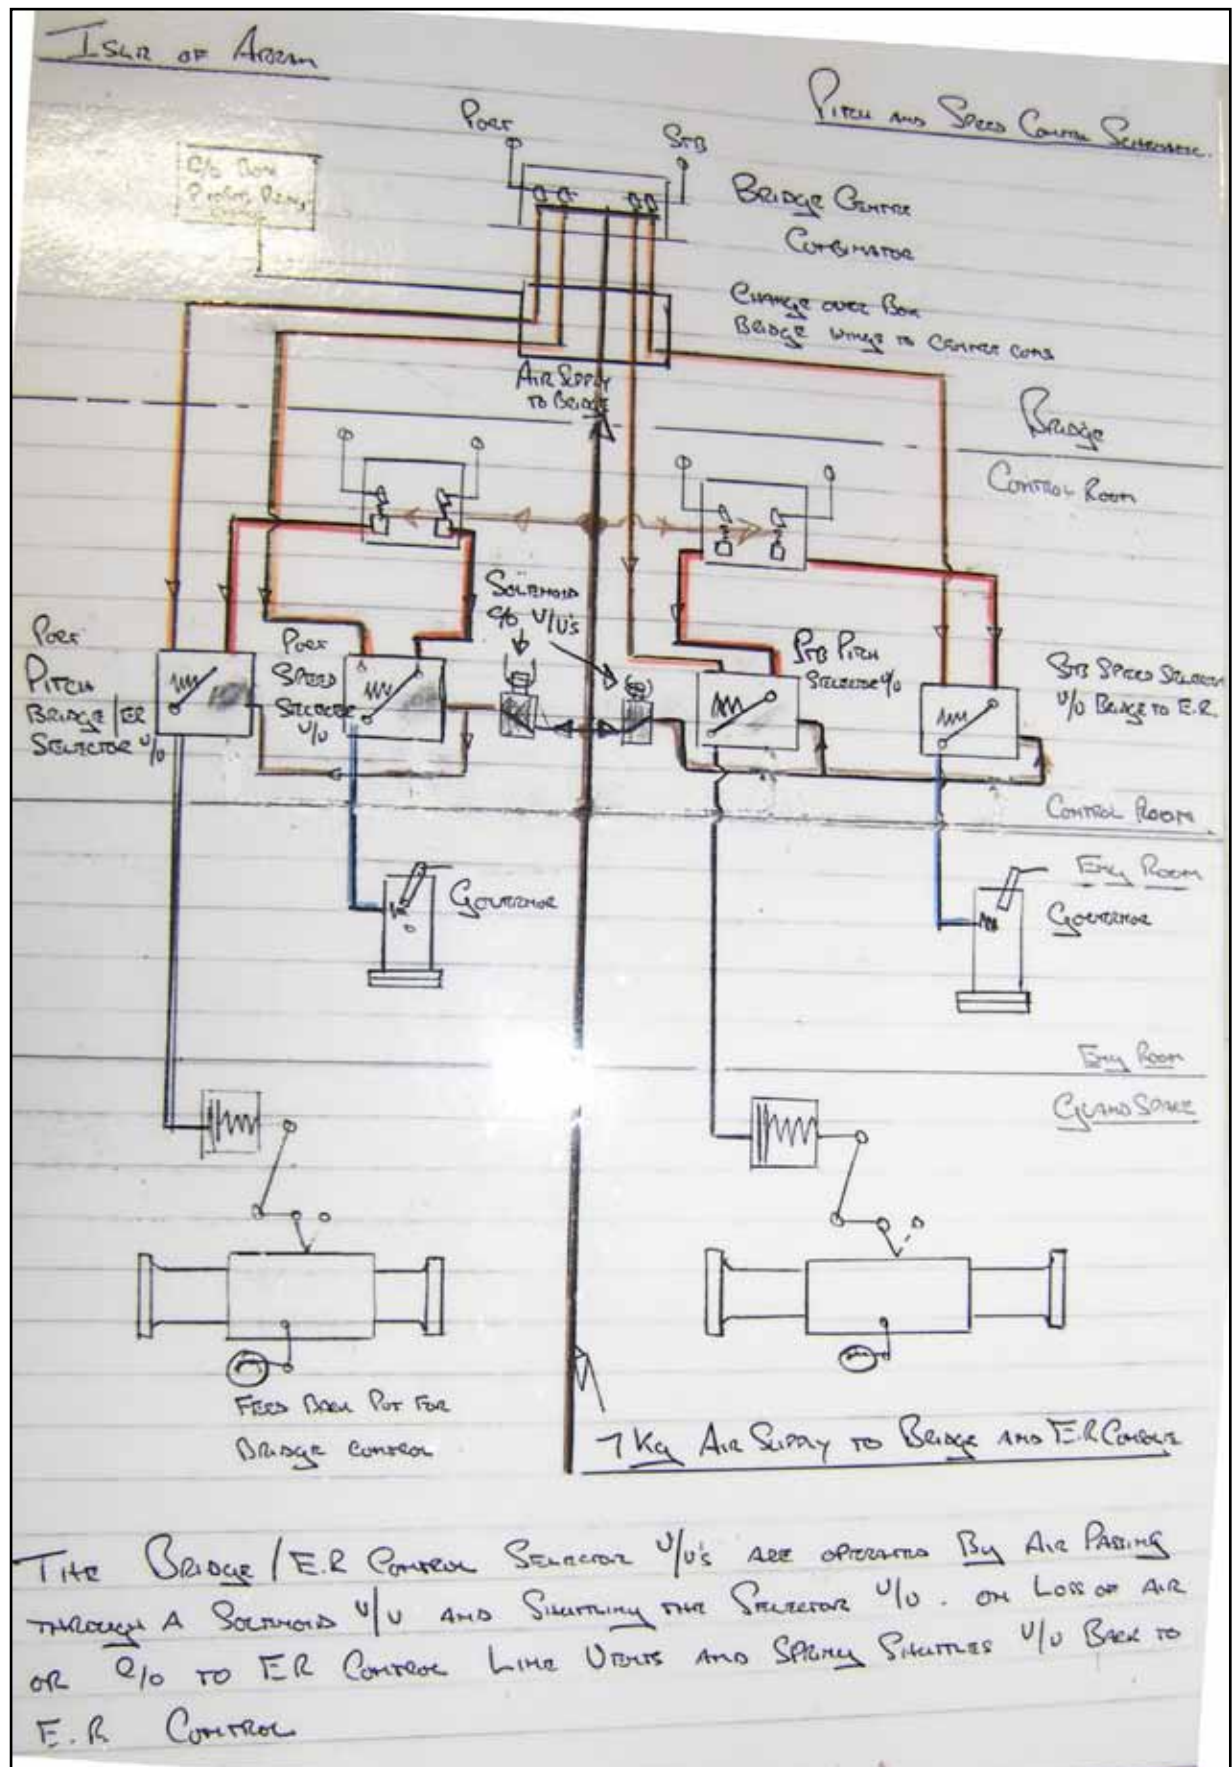 ISLE OF ARRAN
PITCH AND SPEED CONTROL SCHEMATIC.
PORT
STB
C/O BOX
BRIDGE CENTRE
COMBINATOR
CHANGE OVER BOX
BRIDGE WINGS TO CENTRE CONS
AIR SUPPLY
TO BRIDGE
BRIDGE
CONTROL ROOM
SOLENOID
C/O V/V'S
PORT
PITCH
BRIDGE/ER
SELECTOR V/V
PORT
SPEED
SELECTOR
V/V
STB PITCH
SELECTOR V/V
STB SPEED SELECTOR
V/V BRIDGE TO E.R.
CONTROL ROOM
ENG ROOM
GOVERNOR
GOVERNOR
ENG ROOM
GLAND SPACE
FEED BACK POT FOR
BRIDGE CONTROL
7 KG AIR SUPPLY TO BRIDGE AND E.R CONSOLE
THE BRIDGE/E.R CONTROL SELECTOR V/V'S ARE OPERATED BY AIR PASSING
THROUGH A SOLENOID V/V AND SHUTTLING THE SELECTOR V/V. ON LOSS OF AIR
OR C/O TO ER CONTROL LINE VENTS AND SPRING SHUTTLES V/V BACK TO
E.R CONTROL